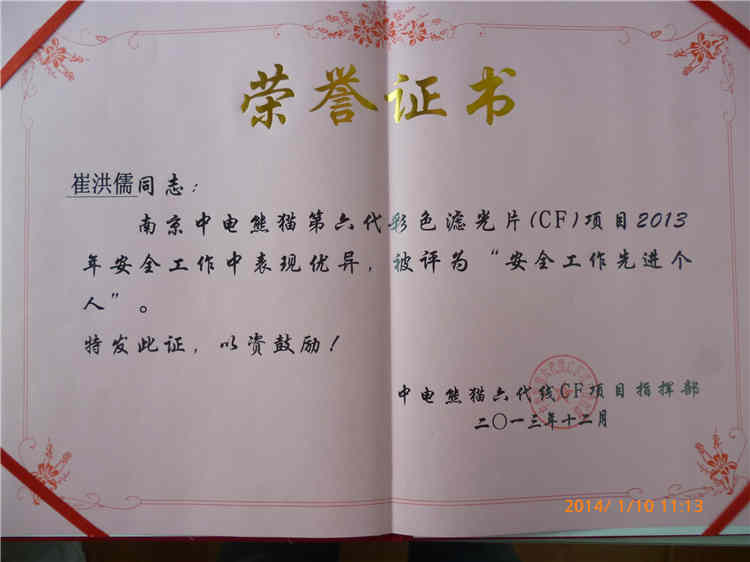 荣誉证书
崔洪儒同志：
南京中电熊猫第六代彩色滤光片(CF)项目2013
年安全工作中表现优异，被评为“安全工作先进个
人”。
特发此证，以资鼓励！
中电熊猫六代线CF项目指挥部
二〇一三年十二月
2014/ 1/10 11:13